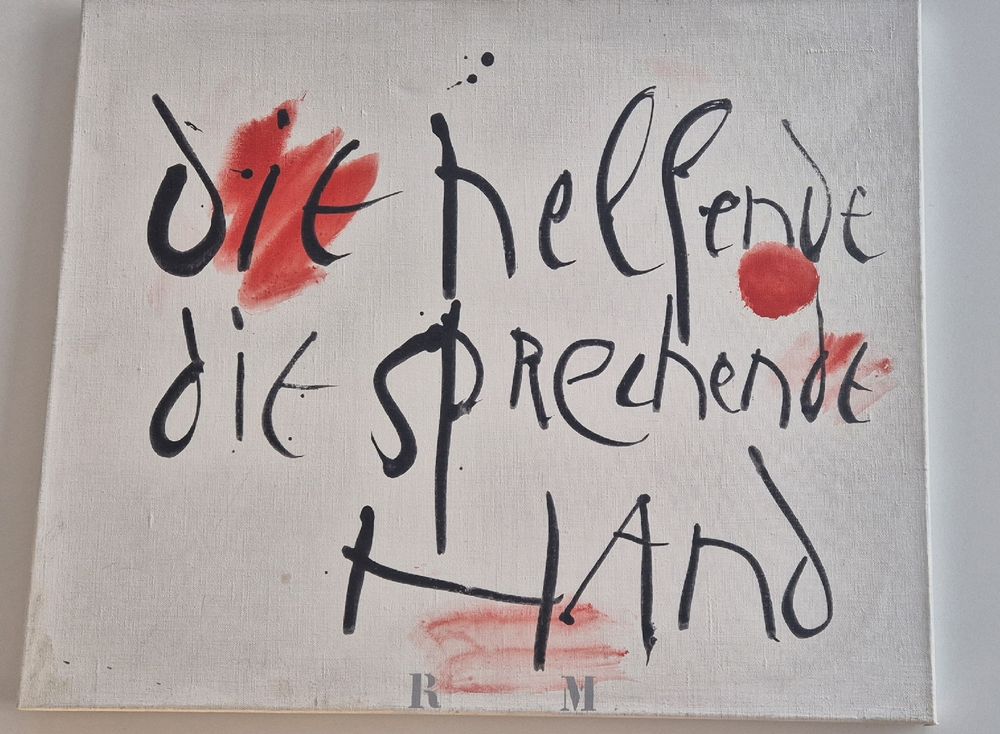 die helfende
die sprechende
HAnd
R M